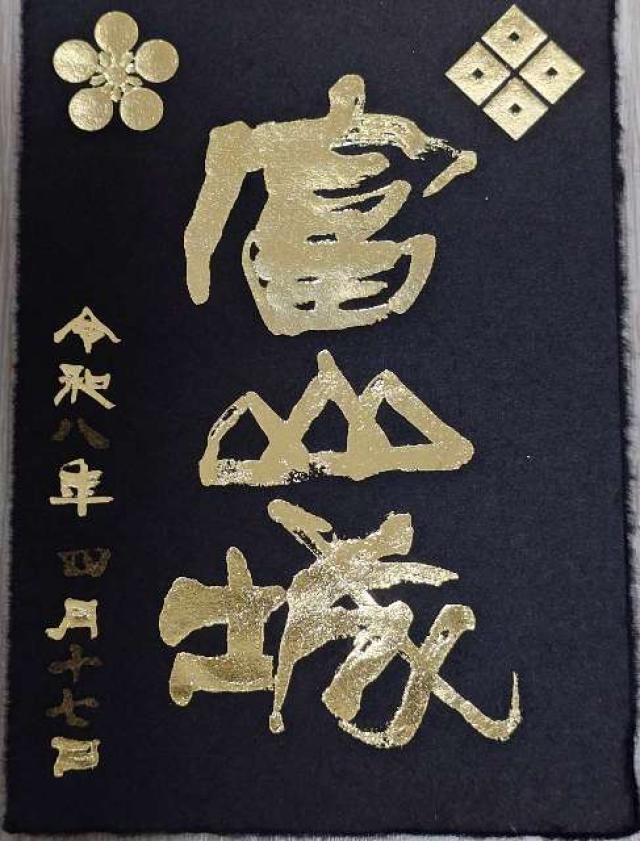 富山城
令和八年四月十七日